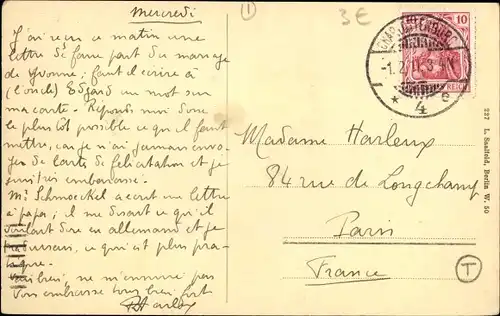 Mercredi
J'ai reçu ce matin une
lettre de faire part du mariage
de Yvonne; faut-il écrire à
(l'oncle) Edgard un mot sur
ma carte. Réponds moi donc
le plus tôt possible ce qu'il faut
mettre, car je n'ai jamais envo-
yer de carte de félicitation et je
suis très embarassé.
Mr Schmoeckel a écrit une lettre
à papa; il me disait ce qu'il
voulait dire en allemand et je
ce qui est plus pra-
tique.
ne m'ennuie pas
Vous embrasse tous bien fort
1
3€
CHARLOTTENBURG
-1.2.11.3-4N
* 4 e
10 10
REICH
Madame Harleux
84 rue de Longchamp
Paris
France
T
227 L. Saalfeld, Berlin W. 50